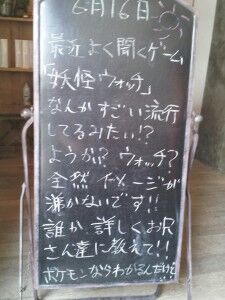 6月16日
最近よく聞くゲーム
「妖怪ウォッチ」
なんかすごい流行
してるみたい!?
ようかい? ウォッチ?
全然イメージが
沸かないです!!
誰か詳しくお兄
さん達に教えて!!
ポケモンならわかるんだけど